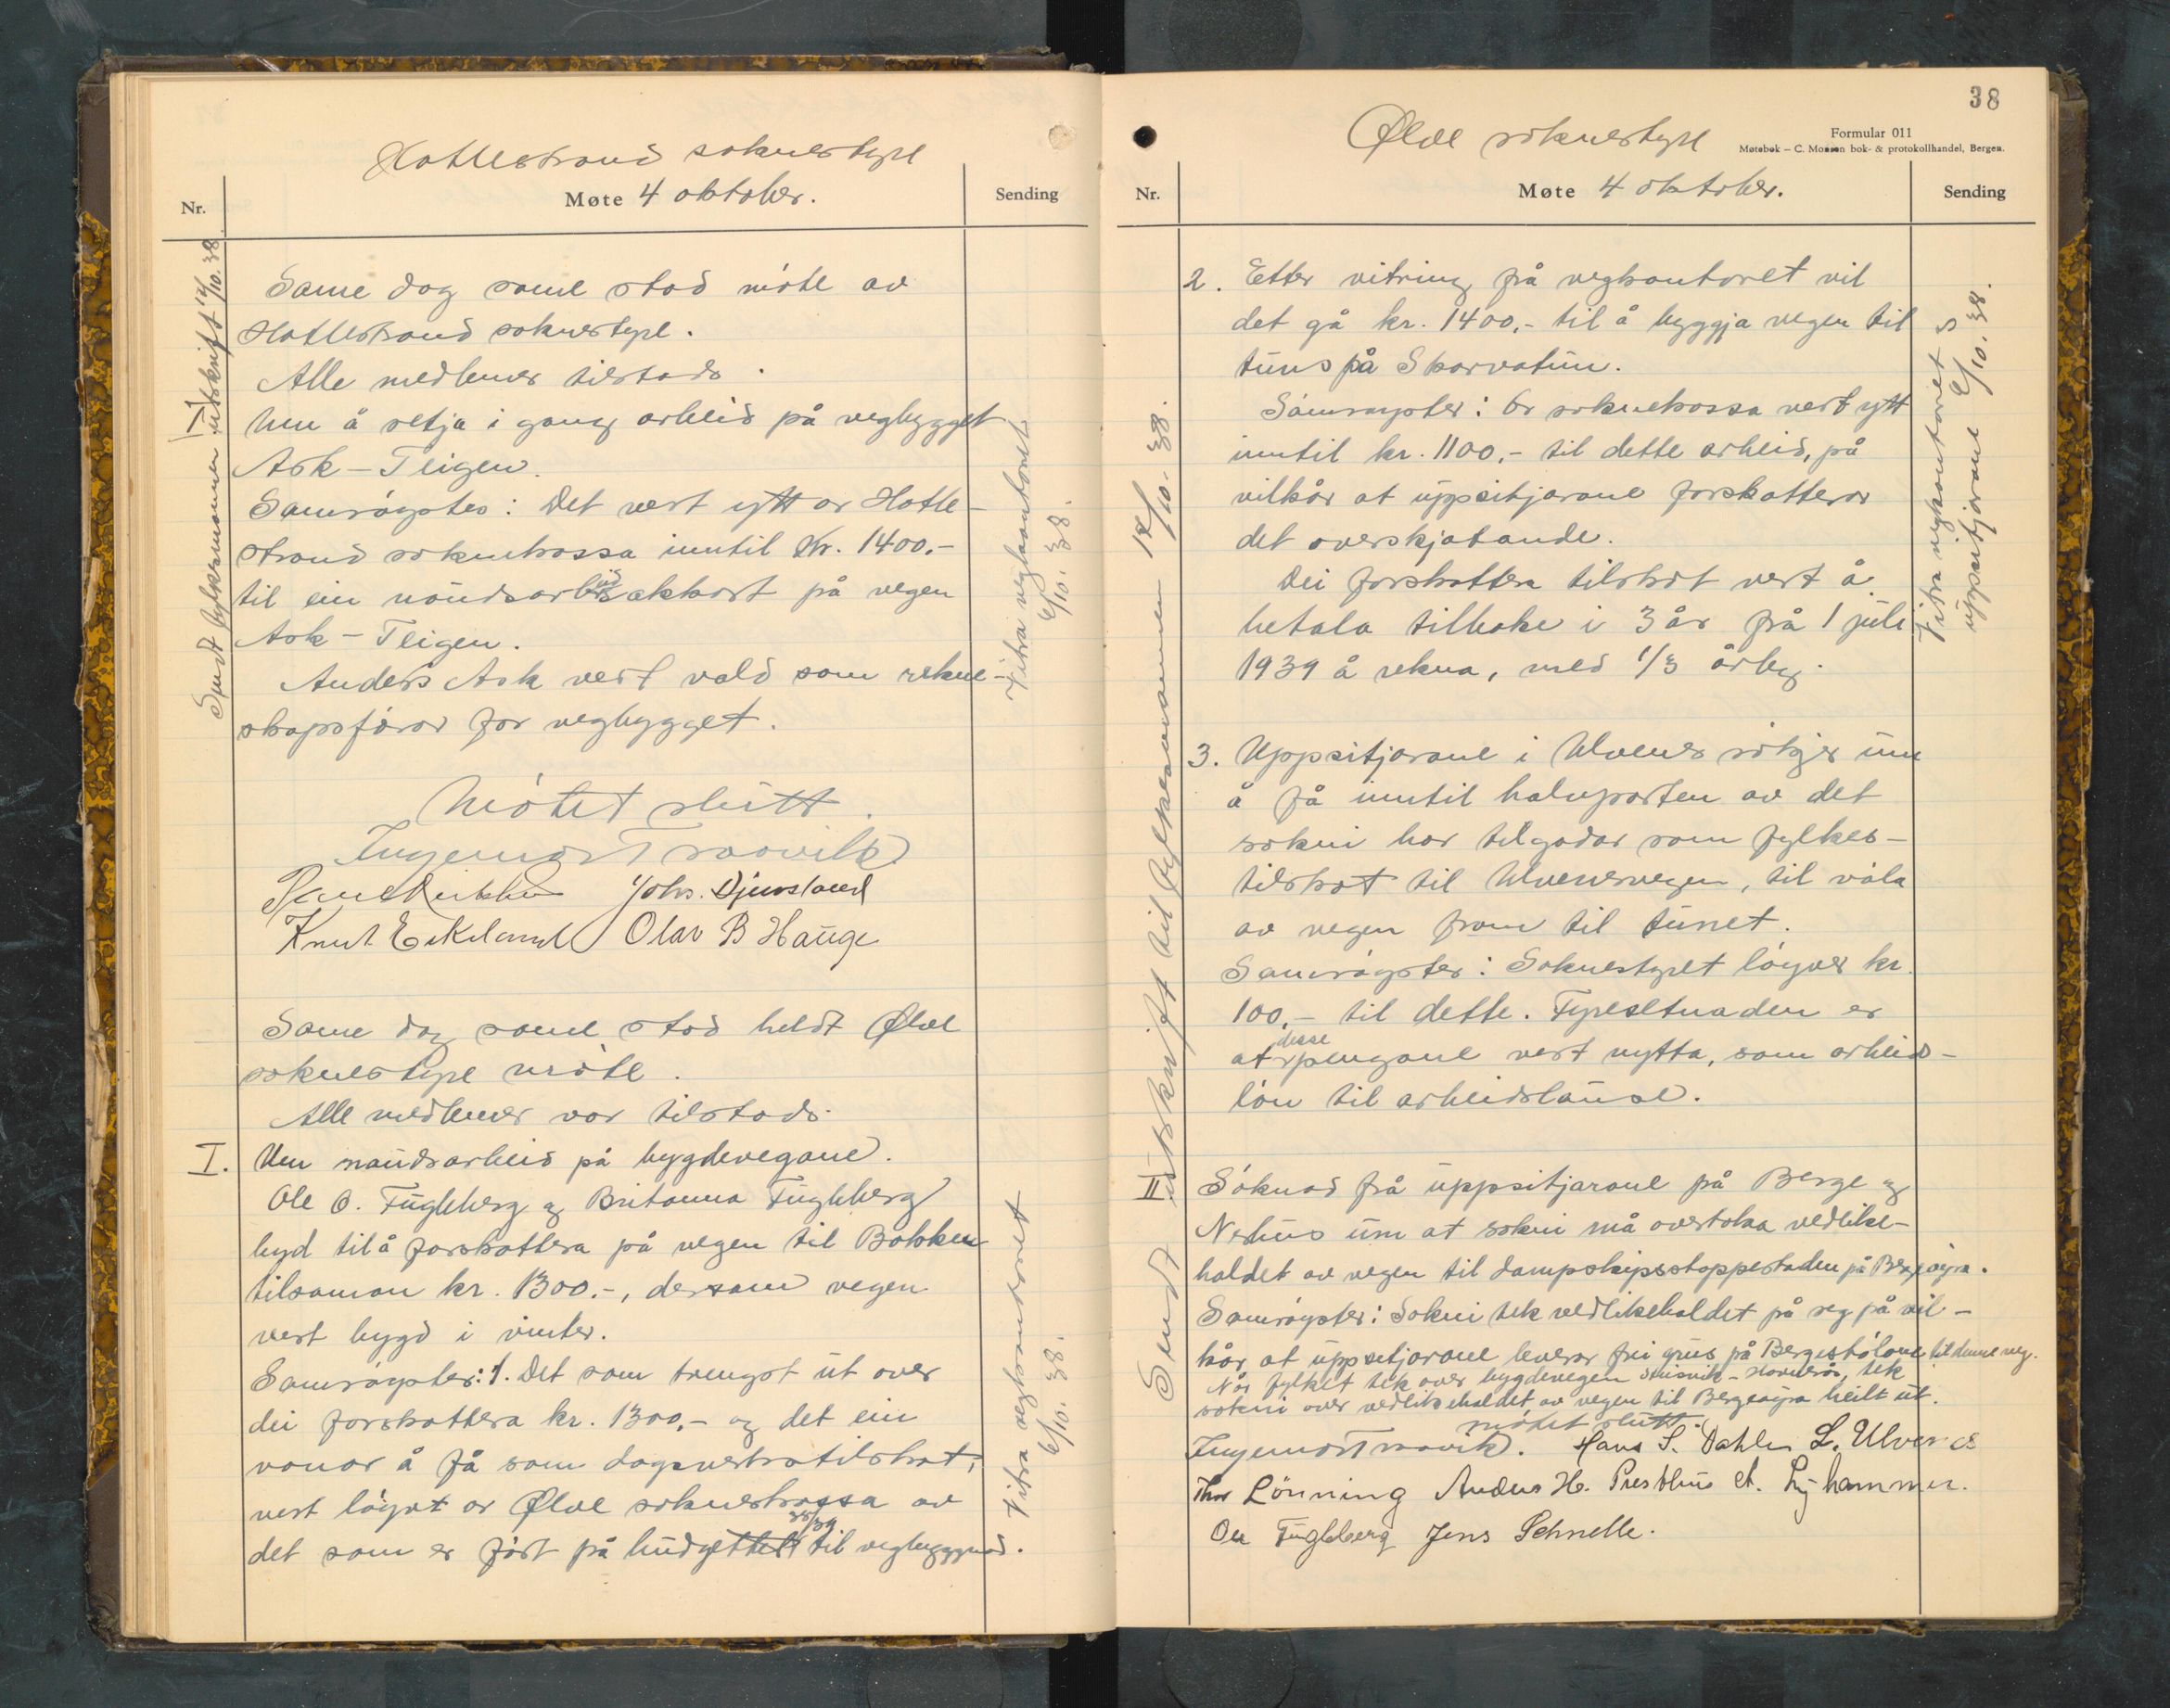 Hatlestrand soknestyre
Nr.
Møte 4 oktober.
Sending
Sendt fylkesmannen utskrift 12/10. 38.
Same dag same stad møte av
Hatlestrand soknestyre.
Alle medlemer tilstads.
Um å setja i gang arbeid på vegbygget
Ask – Teigen.
Samrøystes: Det vert ytt or Hatle-
strand soknekassa inntil Kr. 1400.-
til ein naudsarbeidsakkort på vegen
Ask – Teigen.
Anders Ask vert vald som rekne-
skapsførar for vegbygget.
Vitra vegkontoret
6/10. 38.
Møtet slutt.
Ingemar Traavik
Johs. Djuvsland
Knut Eikeland Olav B Hauge
Same dag same stad heldt Ølve
soknestyre møte.
Alle medlemer var tilstads.
I. Um naudsarbeid på bygdevegane.
Ole O. Fugleberg og Britanna Fugleberg
byd til å forskottera på vegen til Bakken
tilsaman kr. 1300.-, dersom vegen
vert bygd i vinter.
Samrøystes: 1. Det som trengst ut over
dei forskottera kr. 1300,- og det ein
vonar å få som dagsverkstilskot,
vert løyvt or Ølve soknekassa av
det som er ført på budgettet 38/39 til vegbyggnad.
Vitra vegkontoret
6/10. 38.
38
Ølve soknestyre
Formular 011
Møtebok – C. Monsen bok- & protokollhandel, Bergen.
Nr.
Møte 4 oktober.
Sending
2. Etter vitring frå vegkontoret vil
det gå kr. 1400,- til å byggja vegen til
tuns på Skarvatun.
Samrøystes: Or soknekassa vert ytt
inntil kr. 1100,- til dette arbeid, på
vilkår at uppsitjarane forskotterar
det overskjotande.
Dei forskottera tilskot vert å
betala tilbake i 3 år frå 1 juli
1939 å rekna, med 1/3 årleg.
Vitra vegkontoret
uppsitjarane 6/10. 38.
3. Uppsitjarane i Ulvenes søkjer um
å få inntil halvparten av det
sokni har tilgodar som fylkes-
tilskot til Ulvenesvegen, til våla
av vegen fram til tunet.
Samrøystes: Soknestyret løyver kr.
100,- til dette. Fyresetnaden er
at desse pengane vert nytta, som arbeids-
løn til arbeidslause.
II Søknad frå uppsitjarane på Berge og
Nerhus um at sokni må overtaka vedlike-
haldet av vegen til dampskipsstoppestaden på Bergeøyra.
Samrøystes: Sokni tek vedlikehaldet på seg på vil-
kår, at uppsitjarane leverar fri grus på Bergestølane til denne veg.
Når fylket tek over bygdevegen Husvik – Haverås, tek
sokni over vedlikehaldet av vegen til Bergeøyra heilt ut.
Sendt utskrift til fylkesmannen 12/10. 38.
Møtet slutt.
Ingemar Traavik. Hans S. Dahle. L. Ulvenes
Thor Lönning Anders H. Presthus A. Lyhammer.
Ole Fugleberg Jens Schnelle.